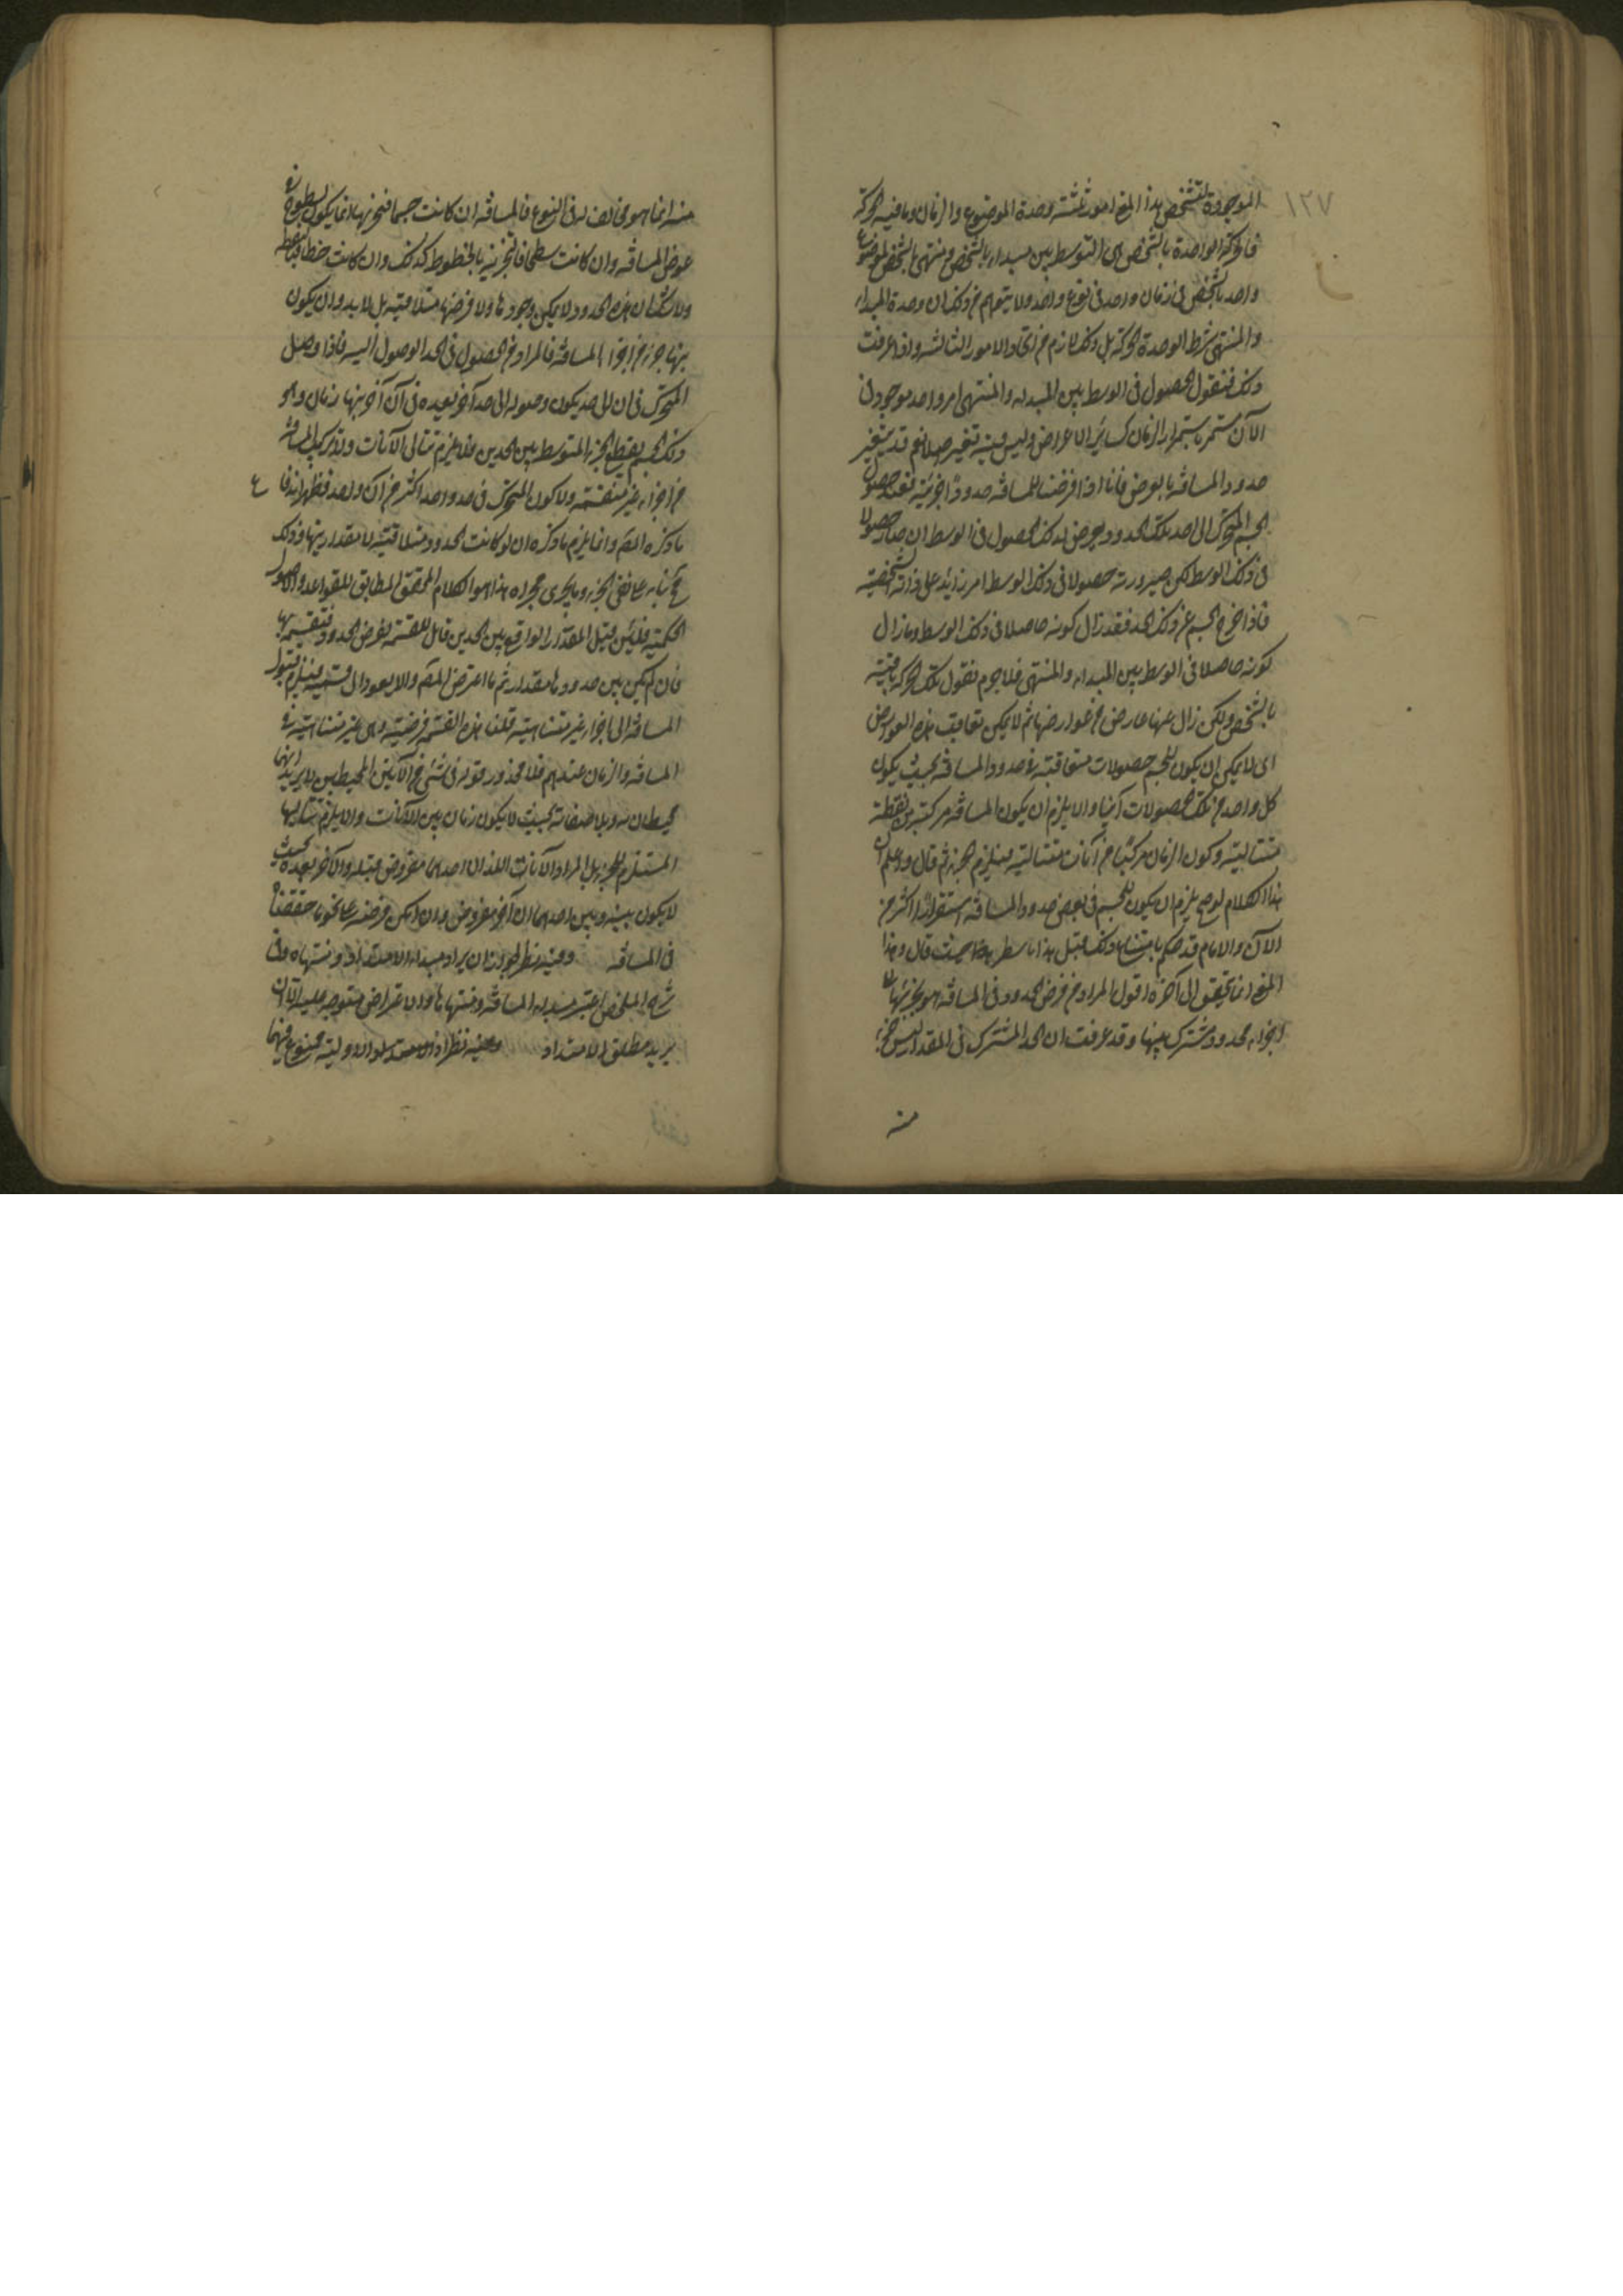 ١٢٧
الموجودة لتشخص بهذا المعنى امور ثلثة وحدة الموضوع والزمان وما فيه الحركة
فالحركة الواحدة بالشخص هى التوسط بين مبداء بالشخص ومنتهى بالشخص لموضوع
واحد بالشخص فى زمان واحد فى نوع واحد ولا يتوهم من ذلك ان وحدة المبداء
والمنتهى شرط لوحدة الحركة بل ذلك لازم من اتحاد الامور الثالثة واذا عرفت
ذلك فنقول الحصول فى الوسط بين المبداء والمنتهى امر واحد موجود فى
الآن مستمر باستمرار الزمان كسائر الاعراض وليس فيه تغير اصلا نعم قد يتغير
حدود المسافة بالعرض فانا اذا فرضنا للمسافة حدودا جزئية فعند حصول
الجسم المتحرك الى احد تلك الحدود يعرض لذلك الحصول فى الوسط ان صار حصولا
فى ذلك الوسط لكن صيرورته حصولا فى ذلك الوسط امر زائد على ذاته الشخصية
فاذا خرج الجسم عن ذلك الحد فقد زال كونه حاصلا فى ذلك الوسط وما زال
كونه حاصلا فى الوسط بين المبداء والمنتهى فلا جرم نقول تلك الحركة باقية
بالشخص ولكن زال عنها عارض من عوارضها ثم لا يمكن تعاقب هذه العوارض
اى لا يمكن ان يكون للجسم حصولات متعاقبة فى حدود المسافة بحيث يكون
كل واحد من تلك الحصولات آنيا والا يلزم ان يكون المسافة مركبة من نقطة
متتالية وكون الزمان مركبا من آنات متتالية فيلزم الجزء ثم قال واعلم ان
هذا الكلام لو صح يلزم ان يكون للجسم فى بعض حدود المسافة استقرارا اكثر من
الآن والامام قد حكم بامتناع ذلك قبل هذا باسطر حيث قال وهذا
المعنى انما يتحقق الى آخره اقول المراد من فرض الحدود فى المسافة هو تجزئتها الى
اجزاء محدود مشترك بينها وقد عرفت ان الحد المشترك فى المقدار ليس جزء
منه
منه انما هو مخالف له فى النوع فالمسافة ان كانت جسما فتجزئتها انما يكون بسطوح فى
عرض المسافة وان كانت سطحا فالتجزئة بالخطوط كذلك وان كانت خطا فبالنقطة
ولا شك ان هذه الحدود لا يمكن وجودها ولا فرضها متلاقية بل لا بد وان يكون
بينها جزء من اجزاء المسافة فالمراد من الحصول فى الحد الوصول اليه فاذا وصل
المتحرك فى آن الى حد يكون وصوله الى حد آخر بعيده فى آن آخر بينها زمان وهو
ذلك الجسم يقطع الجزء المتوسط بين الحدين فلا يلزم تتالى الآنات ولا تركب المسافة
من اجزاء غير منقسمة ولا كون المتحرك فى حد واحد اكثر من آن واحد فظهر اندفاع
ما ذكره المص وانما يلزم ما ذكره ان لو كانت الحدود متلاقية لا مقدار بينها وذلك
مع بنائه على نفى الجزء وما يجرى مجراه هذا هو الكلام المحقق المطابق للقواعد والاصول
الحكمية فلئن قيل المقدار الواقع بين الحدين قابل للقسمة بفرض الحدود فنقسمه بها
فان لم يكن بين حدودها مقدار تم ما اعترض المص والا يعود الى قسمته فيلزم قبول
المسافة الى اجزاء غير متناهية قلنا هذه القسمة فرضية وهى غير متناهية فى
المسافة والزمان عندهم فلا محذور قوله فى شئ من الآنين المحيطين لا يريد انهما
محيطان به وبلا صفاته بحيث لا يكون زمان بين الآنات والا يلزم تتاليها
المستلزم للجزء بل المراد الآنات اللذان احدهما مفروض قبله والآخر بعده بحيث
لا يكون بينه وبين احدهما آن آخر مفروض وان امكن فرضه على نحو ما حققنا
فى المسافة وفيه نظر لجواز ان يراد مبداء الامتداد ومنتهاه وفى
شرح الملخص اعتبر مبداء المسافة ومنتهاها والاعتراض متوجه عليه الا ان
يريد مطلق الامتداد وفيه نظر اذ الامتداد والاولية ممنوع فيهما